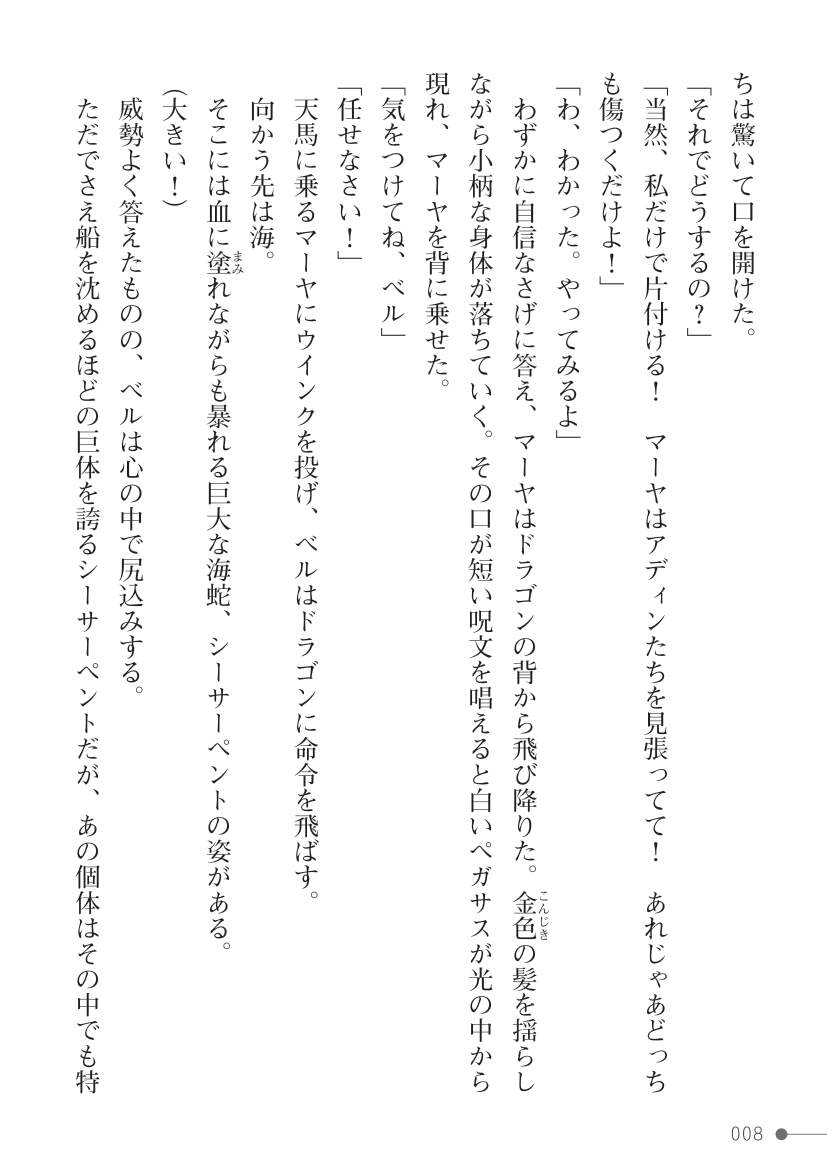 ちは驚いて口を開けた。
「それでどうするの？」
「当然、私だけで片付ける！　マーヤはアディンたちを見張ってて！　あれじゃあどっち
も傷つくだけよ！」
「わ、わかった。やってみるよ」
　わずかに自信なさげに答え、マーヤはドラゴンの背から飛び降りた。金色の髪を揺らし
ながら小柄な身体が落ちていく。その口が短い呪文を唱えると白いペガサスが光の中から
現れ、マーヤを背に乗せた。
「気をつけてね、ベル」
「任せなさい！」
　天馬に乗るマーヤにウインクを投げ、ベルはドラゴンに命令を飛ばす。
　向かう先は海。
　そこには血に塗れながらも暴れる巨大な海蛇、シーサーペントの姿がある。
（大きい！）
　威勢よく答えたものの、ベルは心の中で尻込みする。
　ただでさえ船を沈めるほどの巨体を誇るシーサーペントだが、あの個体はその中でも特
こんじき
まみ
008